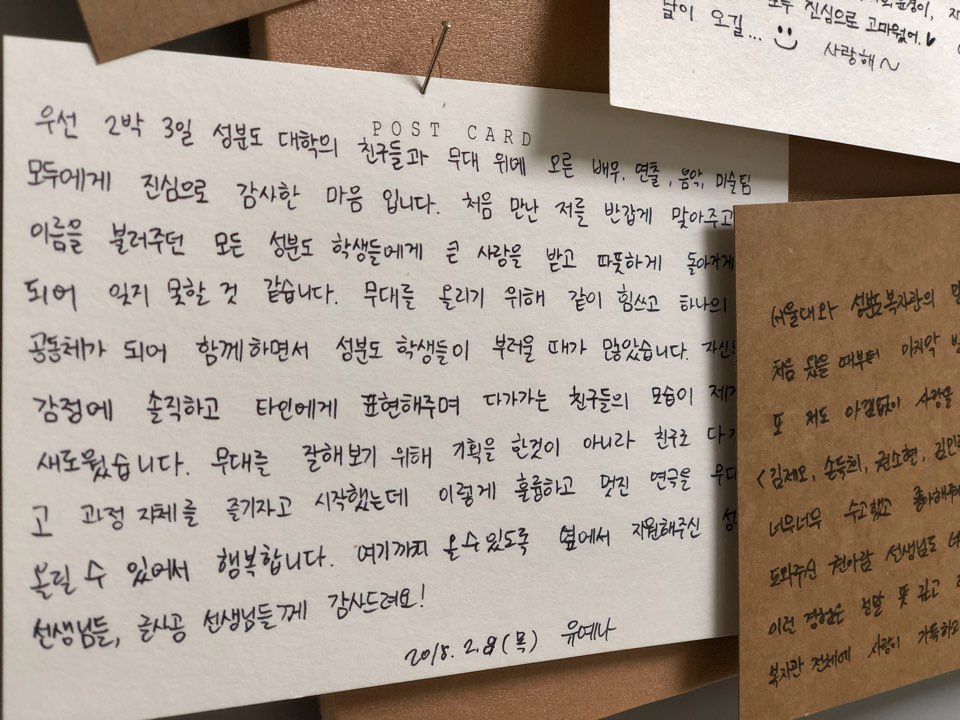 POST CARD
우선 2박 3일 성분도 대학의 친구들과 무대 위에 오른 배우, 연출, 음악, 미술팀
모두에게 진심으로 감사한 마음 입니다. 처음 만난 저를 반갑게 맞아주고
이름을 불러주던 모든 성분도 학생들에게 큰 사랑을 받고 따뜻하게 돌아가게
되어 잊지 못할 것 같습니다. 무대를 올리기 위해 같이 힘쓰고 하나의
공동체가 되어 함께하면서 성분도 학생들이 부러울 때가 많았습니다.
감정에 솔직하고 타인에게 표현해주며 다가가는 친구들의 모습이
새로웠습니다. 무대를 잘해보기 위해 기획을 한것이 아니라 친구로
고 과정 자체를 즐기자고 시작했는데 이렇게 훌륭하고 멋진 연극을
올릴 수 있어서 행복합니다. 여기까지 올 수 있도록 옆에서 지원해주신
선생님들, 글사공 선생님들께 감사드려요!
2018. 2. 8 (목) 유예나
모두 진심으로 고마웠어.♥
날이 오길... 사랑해~
서울대와 성분도복지관의
처음 왔을 때부터 마지막
또 저도 아낌없이 사랑을
너무너무 수고했고
도와주신 권아람 선생님도
이런 경험은 정말 못 깊고
복지관 전체에 사랑이 가득하고